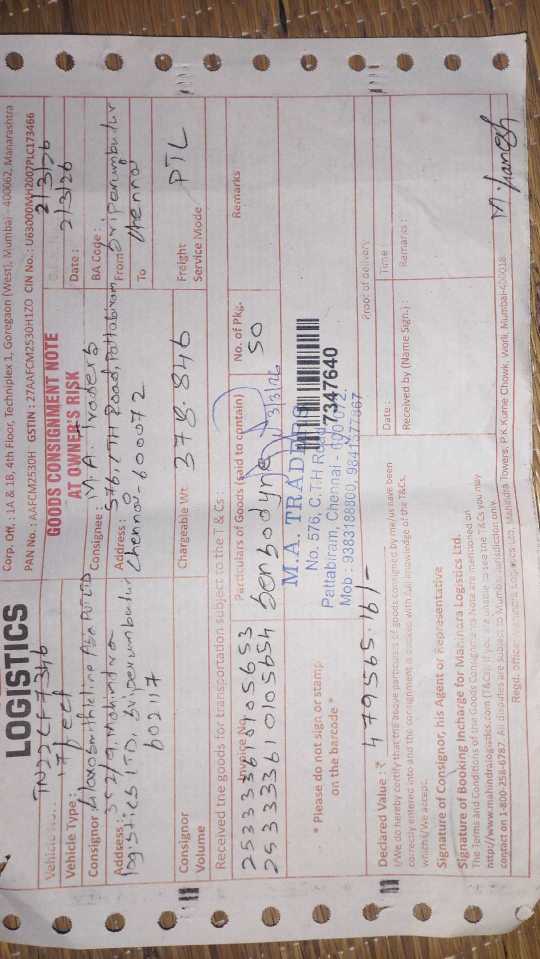 LOGISTICS
Corp. Off. : 1A & 1B, 4th Floor, Techniplex 1, Goregaon (West), Mumbai - 400062, Maharashtra
PAN No. : AAFCM2530H GSTIN : 27AAFCM2530H1ZO CIN No. : U63000MH2007PLC173466
TN22CF7346
GOODS CONSIGNMENT NOTE
AT OWNER'S RISK
2/3/26
Vehicle Type : 17feet
Date : 2/3/26
Consignor
Consignee : M.A. Traders
BA Code :
Address : 352/9, Mahindra
logistics LTD, Sriperumbudur
602117
Address : 576, CTH Road, Pattabiram
Chennai - 600072
From Sriperumbudur
To Chennai
Consignor
Volume
Chargeable Wt. 378.846
Freight
Service Mode PTL
Received the goods for transportation subject to the T & Cs.
Invoice No.
Particulars of Goods (said to contain)
No. of Pkg.
Remarks
253333610105653
253333610105654
Sensodyne
50
3/3/26
* Please do not sign or stamp
on the barcode *
M.A. TRADERS
No. 576, C.T.H Road
Pattabiram, Chennai - 600 072.
Mob : 9383188800, 9841577867
7347640
Declared Value : ₹ 479565.16/-
Proof of delivery
Date :
Time :
I/We do hereby certify that the above particulars of goods consigned by me/us have been
correctly entered into and the consignment is booked with full knowledge of the T&Cs,
which I/We accept.
Received by (Name Sign.) :
Remarks :
Signature of Consignor, his Agent or Representative
Signature of Booking Incharge for Mahindra Logistics Ltd.
The Terms and Conditions of the Goods Consignment Note are mentioned on
http://www.mahindralogistics.com (T&Cs). If you are unable to see the T&Cs you may
contact on 1-800-258-6787. All disputes are subject to Mumbai Jurisdiction only.
Regd. Office: Mahindra Logistics Ltd, Mahindra Towers, P.K Kurne Chowk, Worli, Mumbai-400018